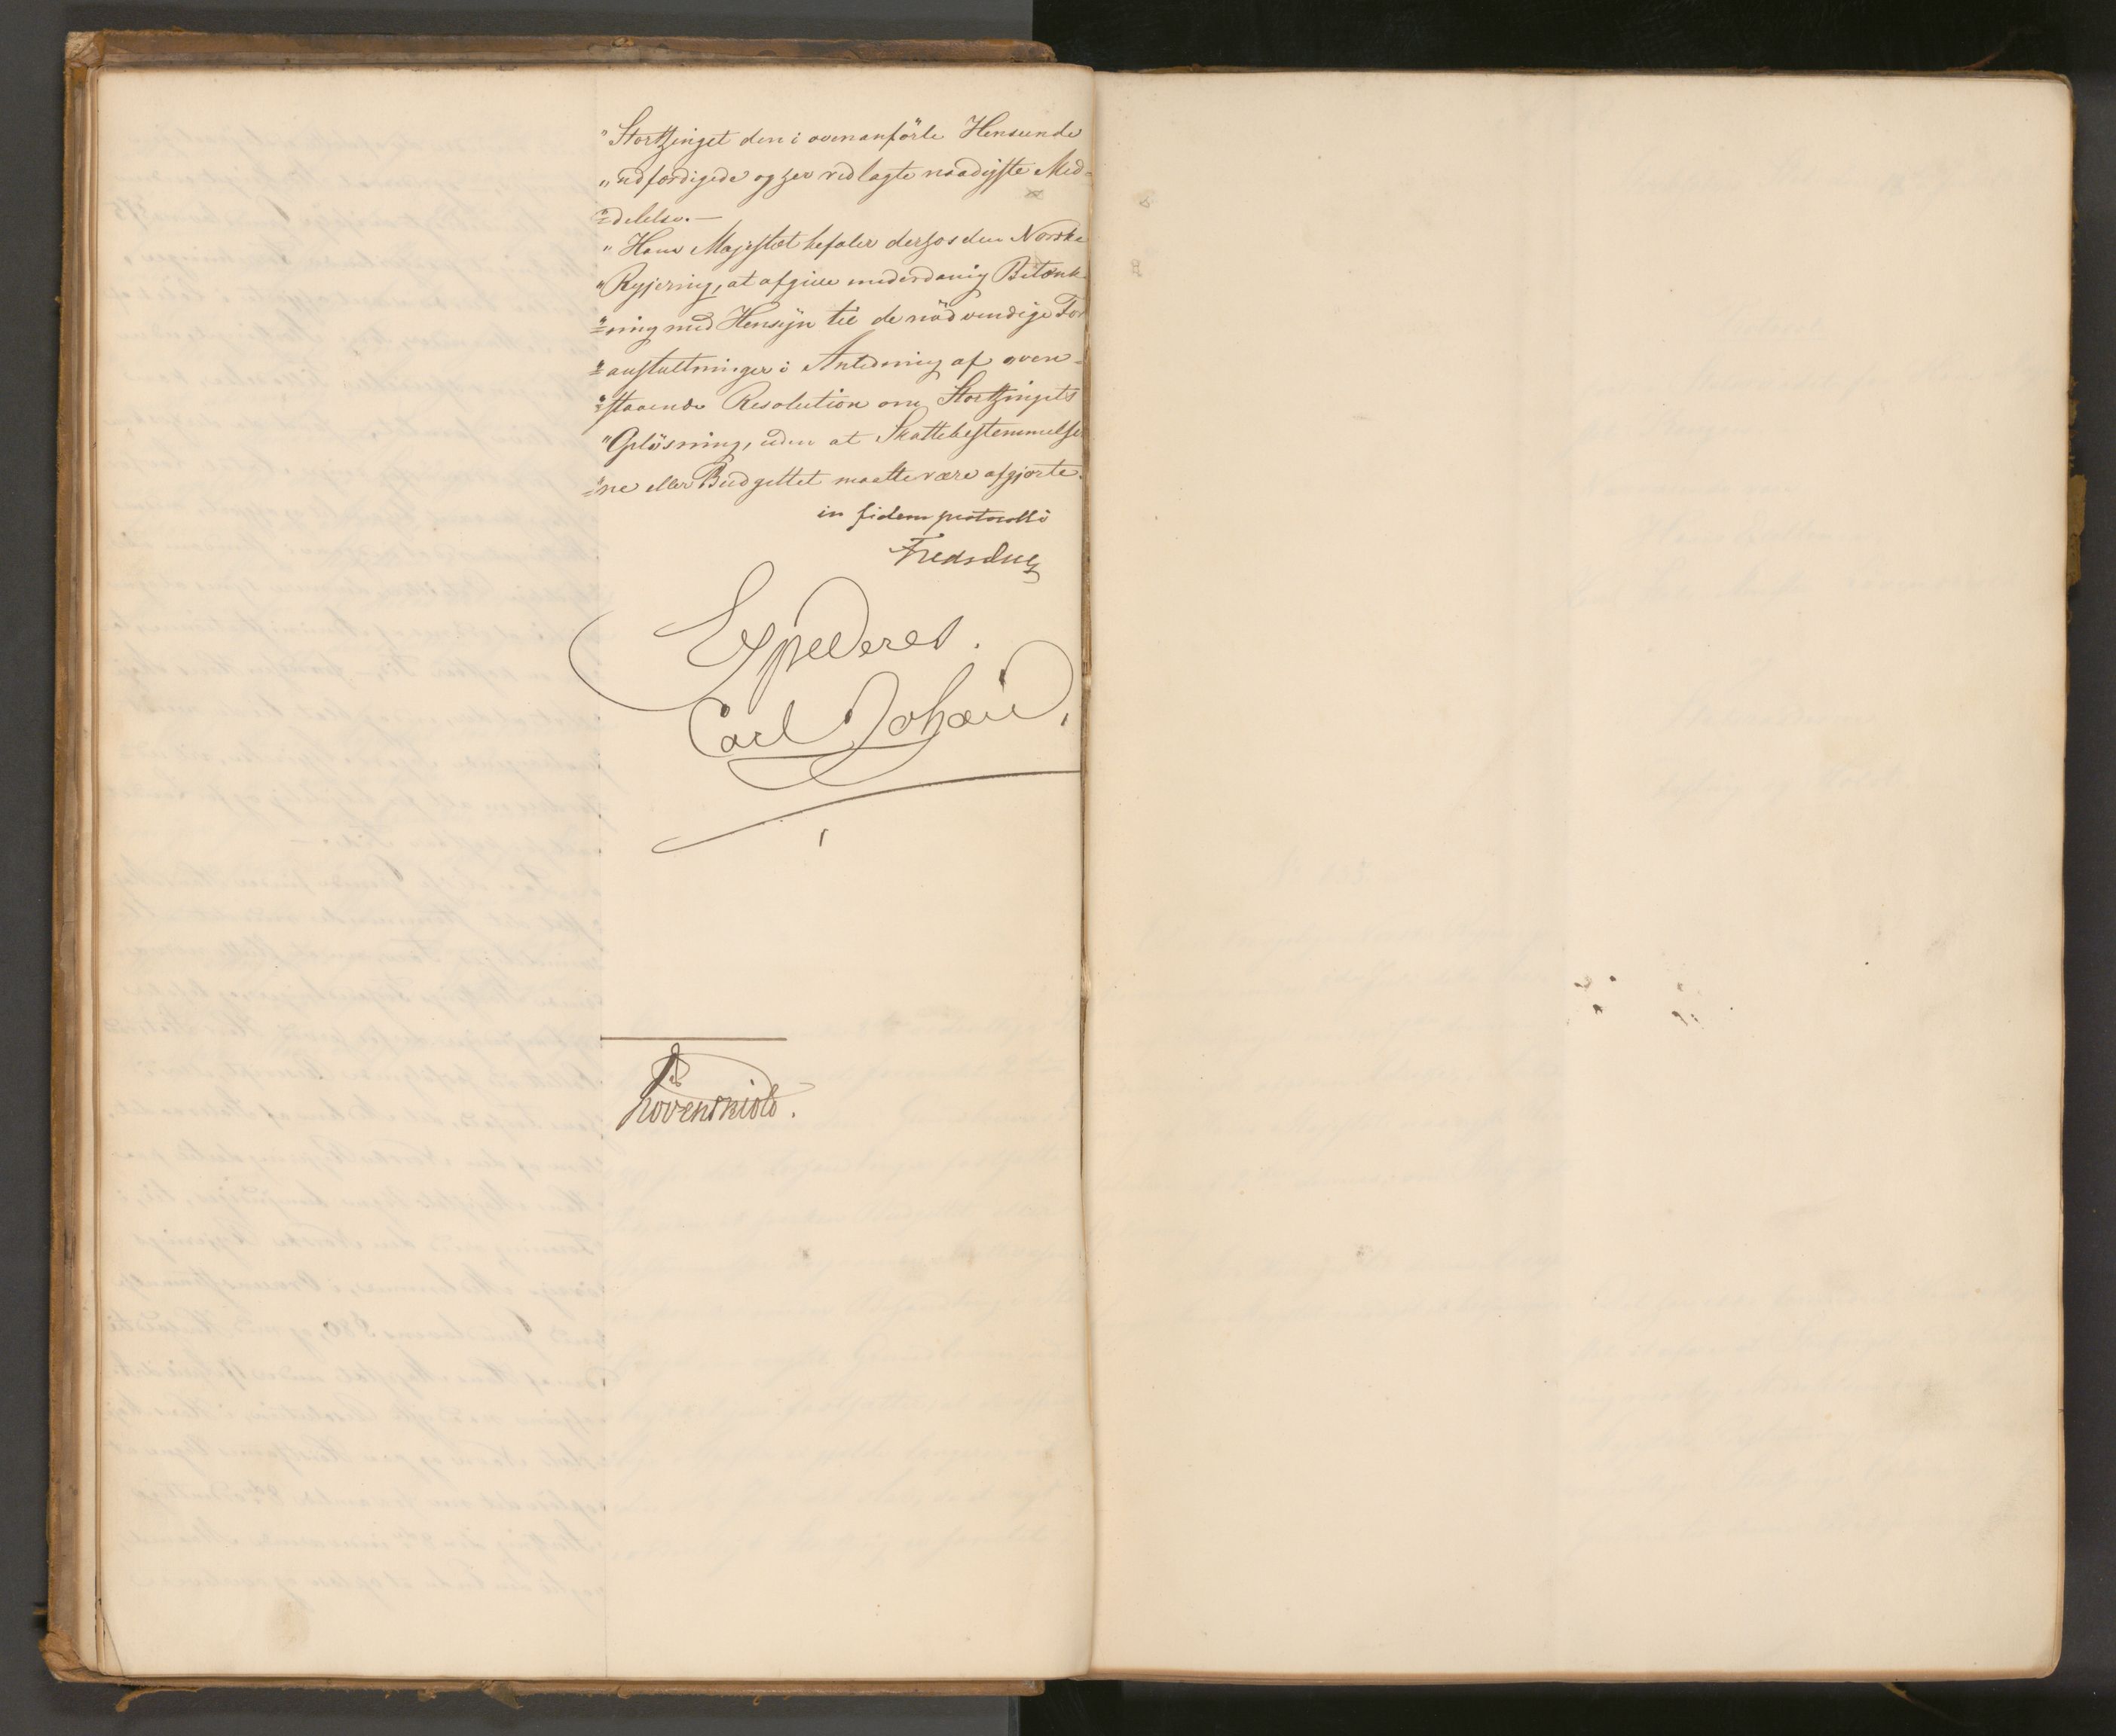 "Storthinget den i ovenanförte Henseende
"udfærdigede og her vedlagte naadigste Med=
"=delelse. —
"Hans Majestæt befaler derhos den Norske
"Regjering, at afgive underdanig Betænk=
"=ning med Hensyn til de nödvendige For
"=anstaltninger i Anledning af oven=
"=staaende Resolution om Storthingets
"Oplösning, uden at Skattebestemmelser
"=ne eller Budgettet maatte være afgjorte.
in fidem protocolli
Expederes.
Carl Johan.
Løvenskiold.